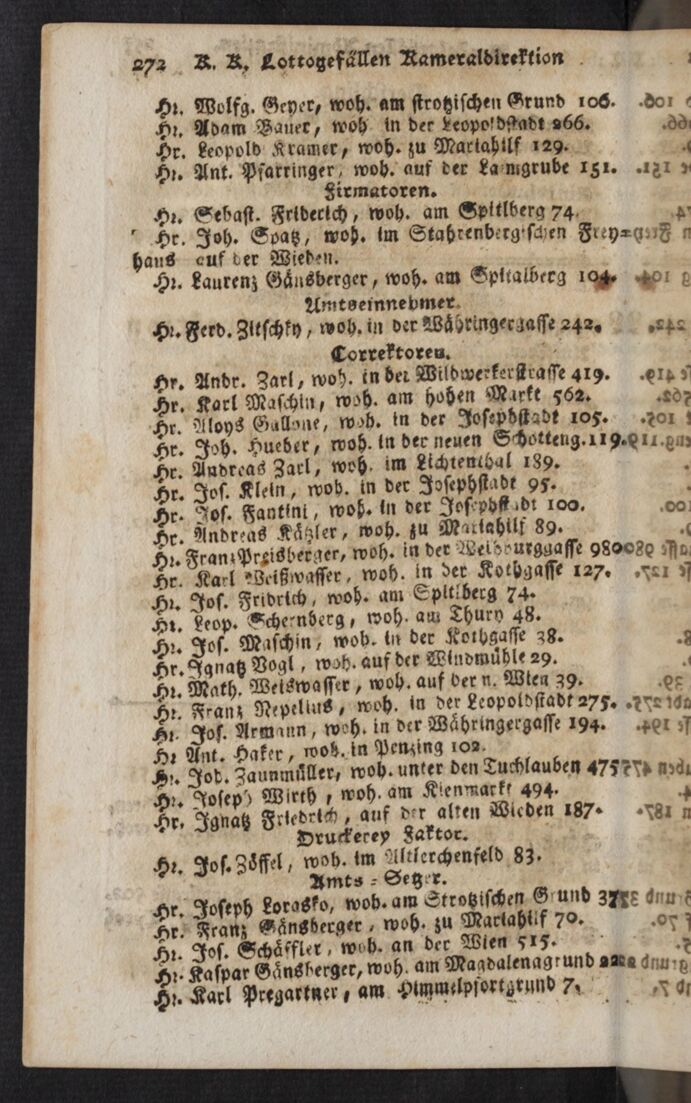 272 K. K. Lottogefällen Kameraldirektion
Hr. Wolfg. Geyer, woh. am strotzischen Grund 106.
Hr. Adam Bauer, woh in der Leopoldstadt 266.
Hr. Leopold Kramer, woh. zu Mariahilf 129.
Hr. Ant. Pfarringer, woh. auf der Laimgrube 151.
Firmatoren.
Hr. Sebast. Friderich, woh. am Spitlberg 74.
Hr. Joh. Spatz, woh. im Stahrenbergischen Frey=
haus auf der Wieden.
Hr. Laurenz Gänsberger, woh. am Spitalberg 104.
Amtseinnehmer.
Hr. Ferd. Zitschky, woh. in der Währingergasse 242.
Correktoren.
Hr. Andr. Zarl, woh. in der Wildwerkerstrasse 419.
Hr. Karl Maschin, woh. am hohen Markt 562.
Hr. Aloys Gallone, woh. in der Josephstadt 105.
Hr. Joh. Hueber, woh. in der neuen Schotteng. 119.
Hr. Andreas Zarl, woh. im Lichtenthal 189.
Hr. Jos. Klein, woh. in der Josephstadt 95.
Hr. Jos. Fantini, woh. in der Josephstadt 100.
Hr. Andreas Kätzler, woh. zu Mariahilf 89.
Hr. Franz Preisberger, woh. in der Weihburggasse 980
Hr. Karl Weißwasser, woh. in der Kothgasse 127.
Hr. Jos. Fridrich, woh. am Spitlberg 74.
Hr. Leop. Schernberg, woh. am Thury 48.
Hr. Jos. Maschin, woh. in der Kothgasse 38.
Hr. Ignatz Vogl, woh. auf der Windmühle 29.
Hr. Math. Weiswasser, woh. auf der n. Wien 39.
Hr. Franz Nepelius, woh. in der Leopoldstadt 275.
Hr. Jos. Armann, woh. in der Währingergasse 194.
Hr Ant. Haker, woh. in Penzing 102.
Hr. Joh. Zaunmüller, woh. unter den Tuchlauben 475
Hr. Joseph Wirth, woh. am Kienmarkt 494.
Hr. Ignatz Friedrich, auf der alten Wieden 187.
Druckerey Faktor.
Hr. Jos. Zöffel, woh. im Altlerchenfeld 83.
Amts = Setzer.
Hr. Joseph Lorasko, woh. am Strotzischen Grund
Hr. Franz Gänsberger, woh. zu Mariahilf 70.
Hr. Jos. Schäffler, woh. an der Wien 515.
Hr. Kaspar Gänsberger, woh. am Magdalenagrund
Hr. Karl Pregartner, am Himmelpfortgrund 7.